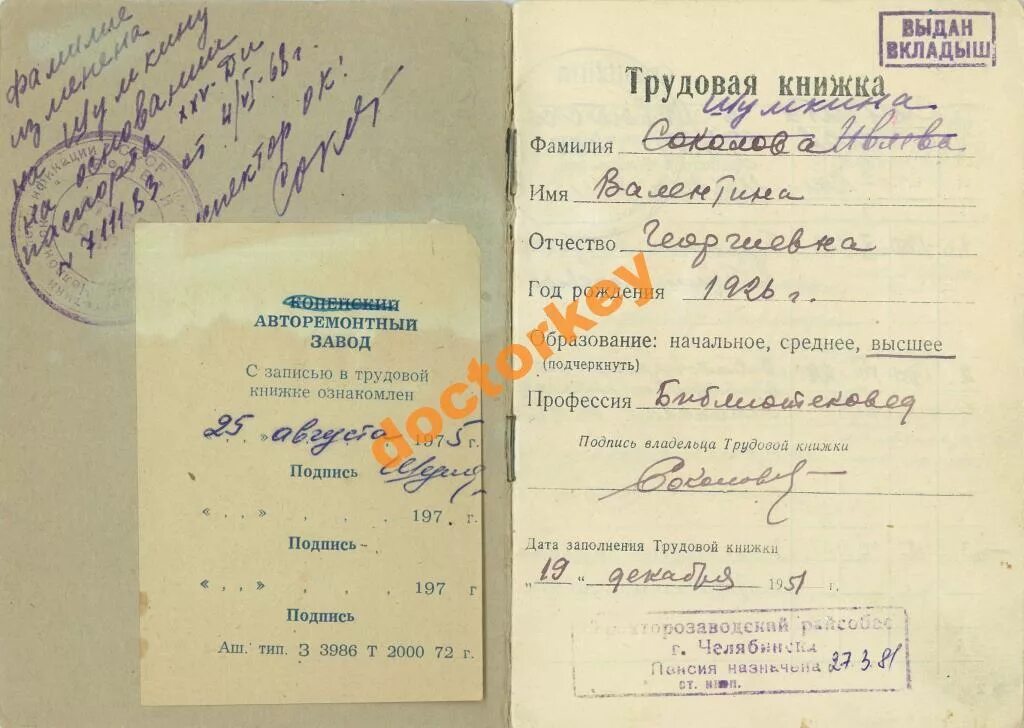 фамилие
изменена
на Шумкину
на основании
паспорта XXV-ДИ
от 4/VI-68г.
7.III 83
инспектор ОК:
ВЫДАН
ВКЛАДЫШ
Трудовая книжка
Шумкина
Фамилия Соколова Ивлева
Имя Валентина
Отчество Георгиевна
Год рождения 1926 г.
Образование: начальное, среднее, высшее
(подчеркнуть)
Профессия Библиотековед
Подпись владельца Трудовой книжки
Соколова
Дата заполнения Трудовой книжки
„19“ декабря 1951 г.
Тракторозаводский райсобес
г. Челябинска
Пенсия назначена 27.3.81
ст. инсп.
КОПЕЙСКИЙ
АВТОРЕМОНТНЫЙ
ЗАВОД
С записью в трудовой
книжке ознакомлен
25 » августа 1975 г.
Подпись
« . . » . . . 197 г.
Подпись -
« . . » . . . 197 г
Подпись
Аш. тип. З 3986 Т 2000 72 г.
doctorkey